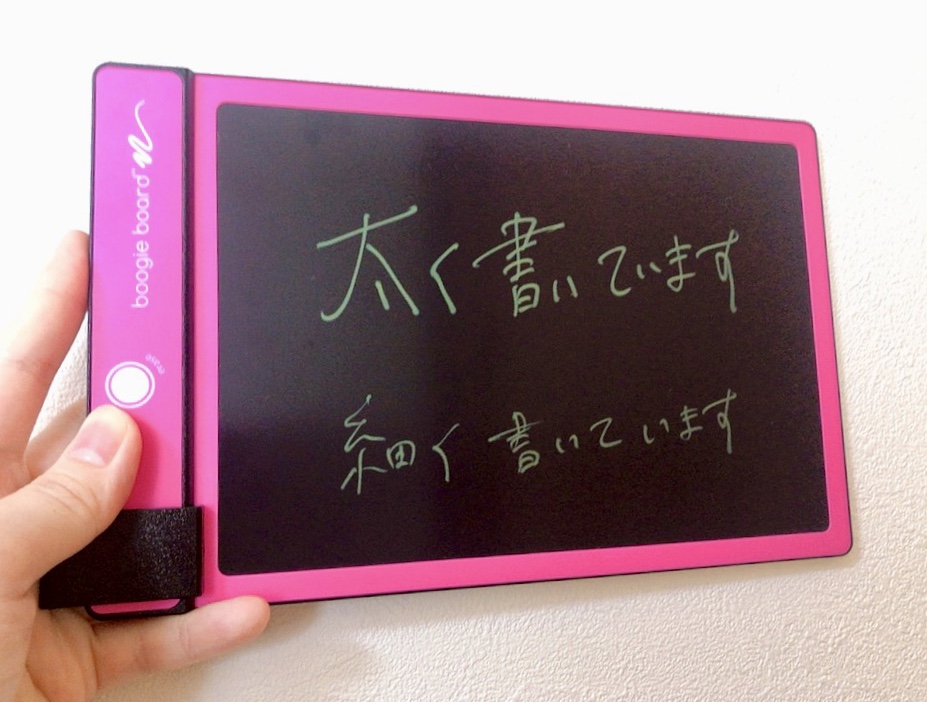 boogie board
erase
太く書いています
細く書いています